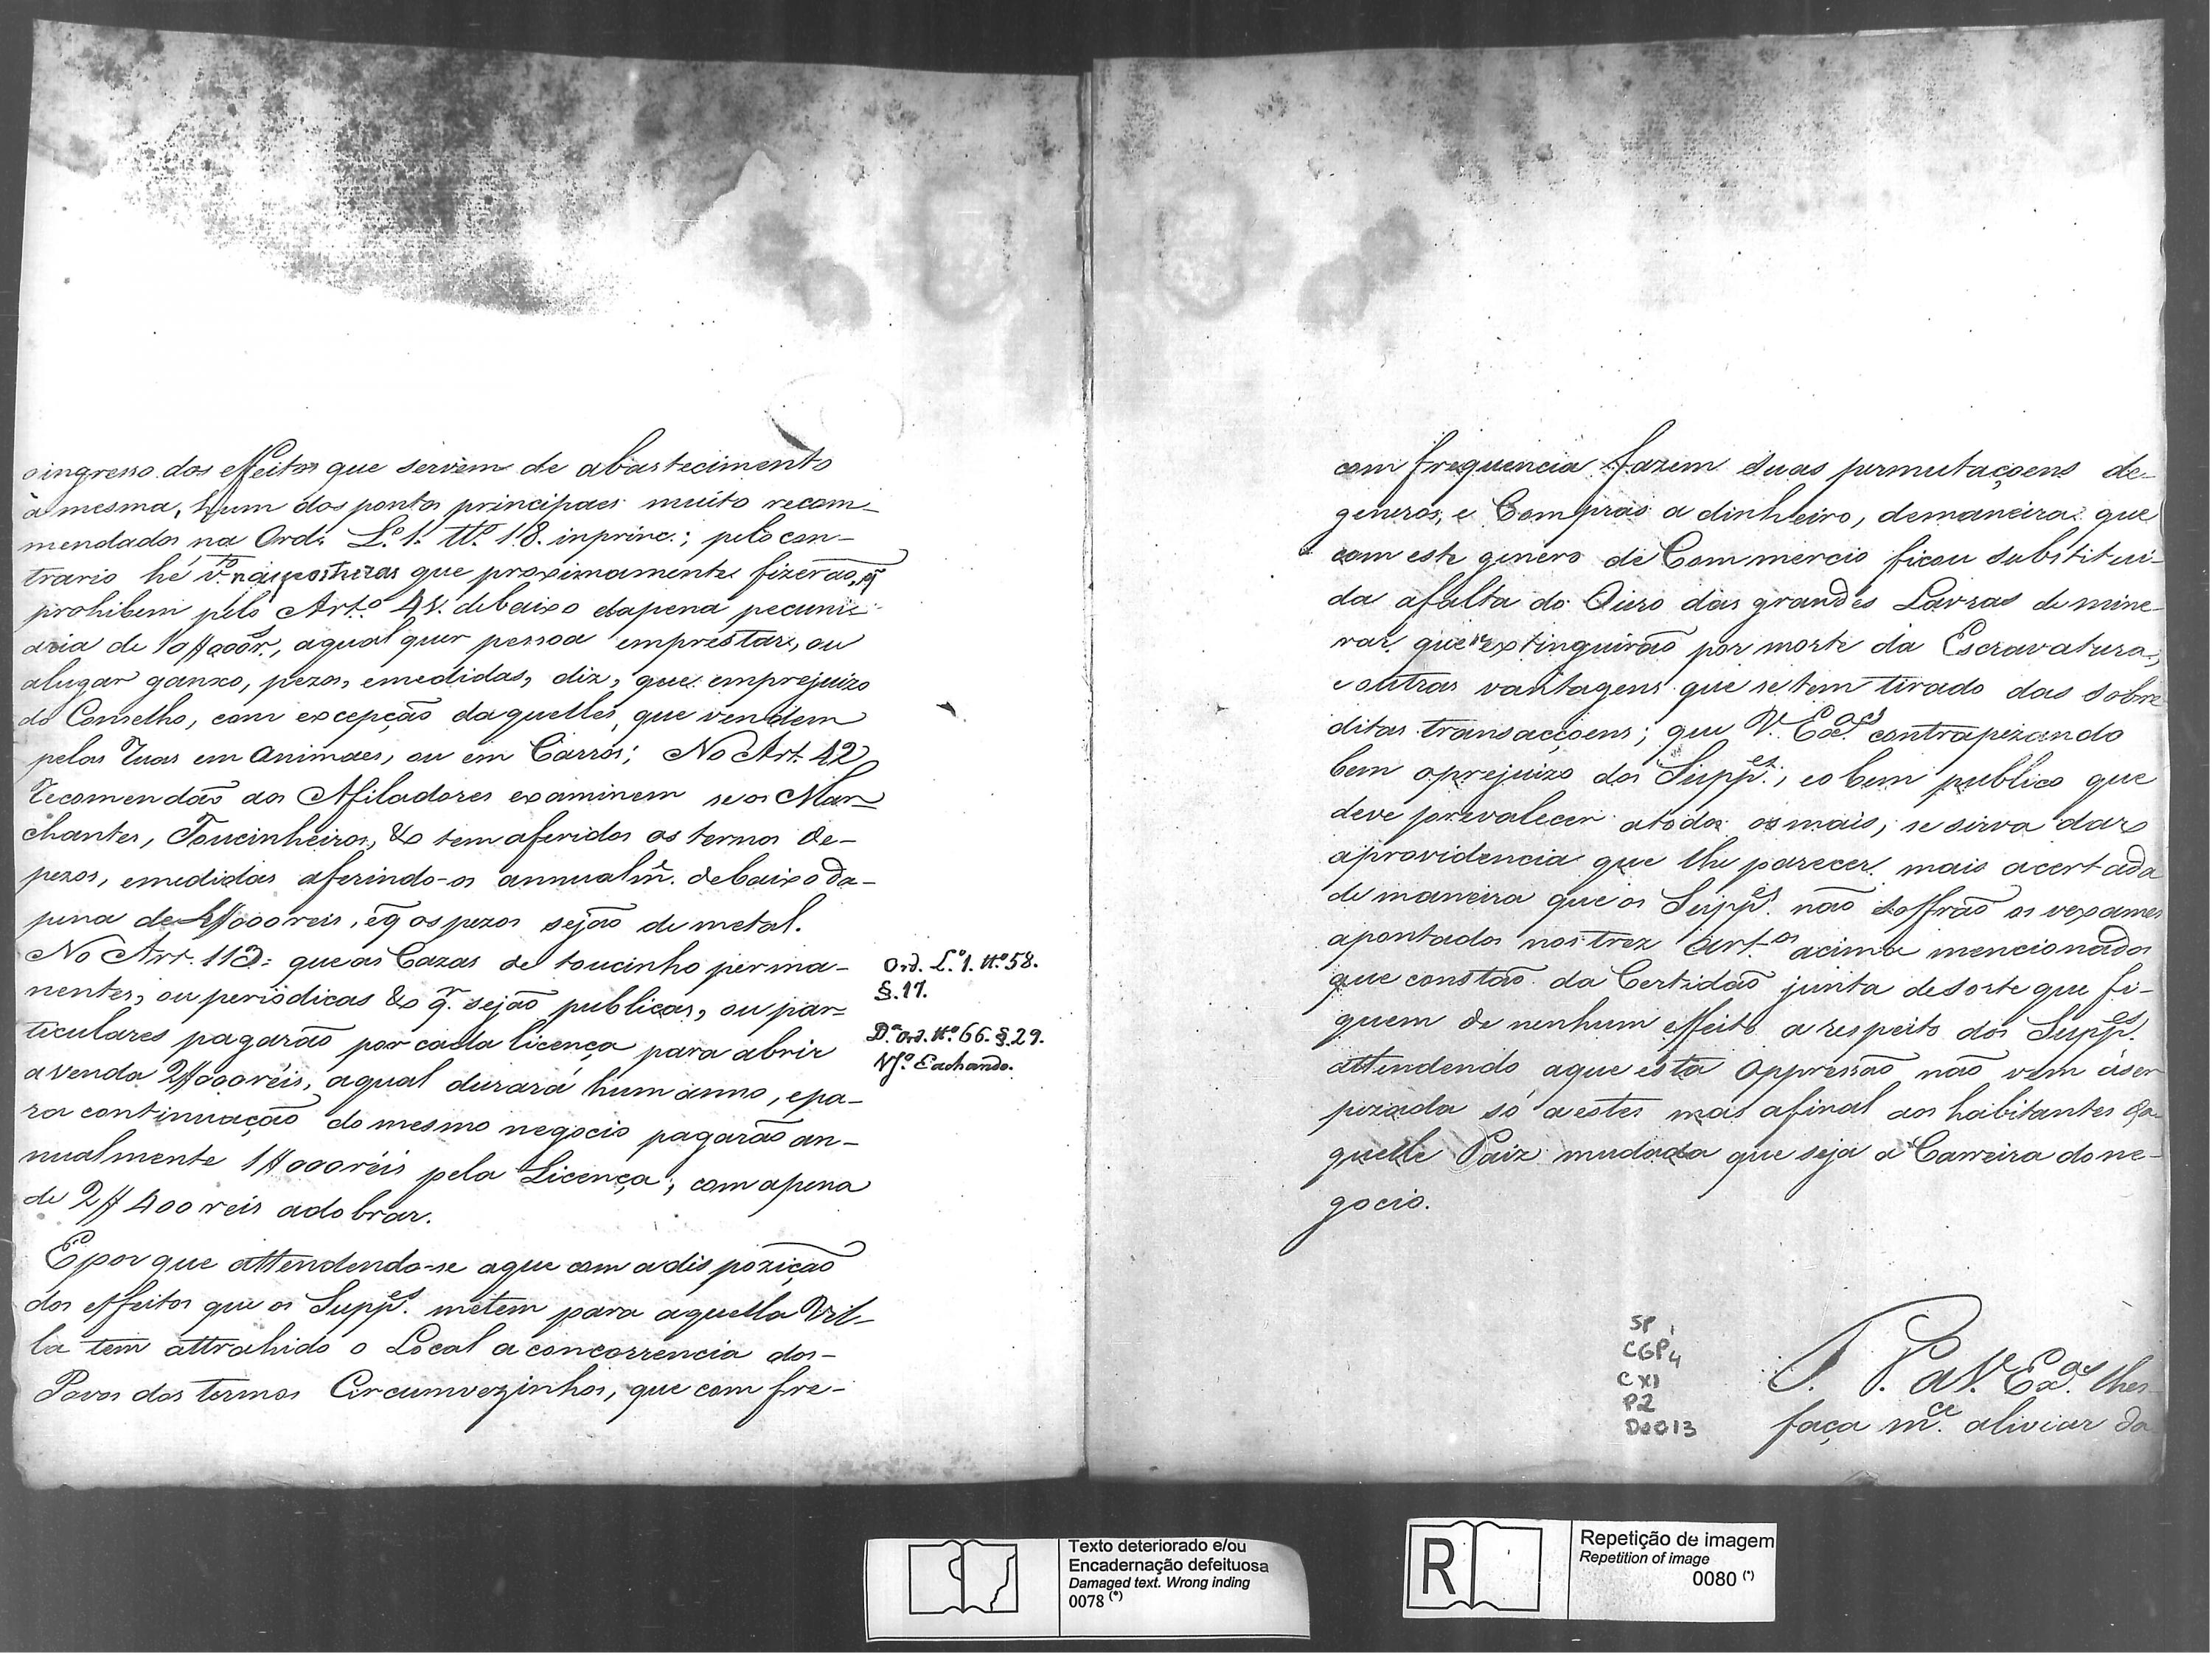 o ingresso dos effeitos que servem de abastecimento
à mesma, hum dos pontos principaes muito recom-
mendados na Ord. L.º 1. tt.º 18. inprinc.; pelo con-
trario hé v.to nas posturas que proximamente fizerão, q̃
prohibem pelo Art.º 41. debaixo dapena pecuni-
aria de 10$000r.s, aqual quer pessoa emprestar, ou
alugar ganxo, pezos, emedidas, diz, que emprejuizo
do Conselho, com excepção daquelles, que vendem
pelas Ruas em animaes, ou em Carros; No Art. 42
Recomendão aos Afiladores examinem se os Mar-
chantes, Toucinheiros, &c tem aferidos os ternos de-
pezos, emedidas aferindo-os annualm̃. debaixo da-
pena de 4$000 reis, eq̃ os pezos sejão de metal.
No Art. 113: que as Cazas de toucinho perma-
nentes, ou periodicas &c q̃r. sejão publicas, ou par-
ticulares pagarão por cada licença para abrir
a venda 2$000 réis, aqual durará hum anno, epa-
ra continuação do mesmo negocio pagarão an-
nualmente 1$000 réis pela Licença, com apena
de 2$400 reis adobrar.
Ord. L.º 1. tt.º 58.
§. 17.
D.ª Ord. tt.º 66. §. 29.
E por que attendendo-se aque com a dispozição
dos effeitos que os Supp.es metem para aquella Vil-
la tem attrahido o Local a concorrencia dos-
Povos dos termos Circumvezinhos, que com fre-
com frequencia fazem suas permutaçoens de-
generos, e Compras a dinheiro, demaneira que
com este genero de Commercio ficou substitui-
da afalta do Ouro das grandes Lavras de mine-
rar que se extinguirão por morte da Escravatura,
e outras vantagens que se tem tirado das sobre
ditas transacçoens; que V. Ex.as contrapezando
bem oprejuizo dos Supp.es, eo bem publico que
deve prevalecer atodos os mais, se sirva dar
aprovidencia que lhe parecer mais acertada
de maneira que os Supp.es não soffrão os vexames
apontados nos trez Art.os acima mencionados
que constão da Certidão junta desorte que fi-
quem de nenhum effeito a respeito dos Supp.es
attendendo aque esta oppressão não vem áser
pezada só a estes mas afinal aos habitantes da-
quelle Paiz mudada que seja a Carreira do ne-
gocio.
P. a V. Ex.as lhes
faça m.ce aliviar da
SP
CGP4
CX1
P2
Do013
Texto deteriorado e/ou
Encadernação defeituosa
Damaged text. Wrong inding
0078 (*)
R
Repetição de imagem
Repetition of image
0080 (*)